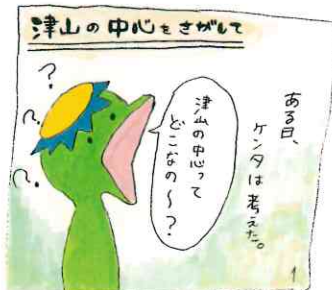 津山の中心をさがして
ある日、
ケンタは考えた。
津山の中心って
どこなの〜？
?
?
?
1